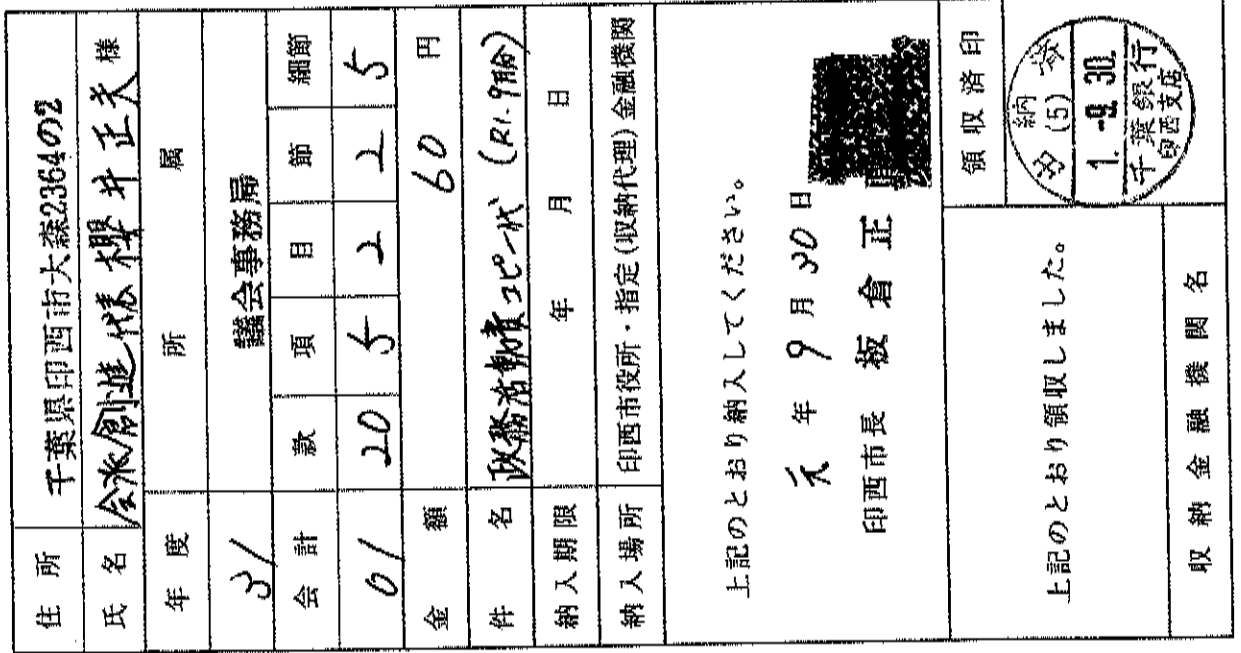 住所 千葉県印西市大森2364の2
氏名 会派創進代表 櫻井正夫 様
年度 所属
31 議会事務局
会計 款 項 目 節 細節
01 20 5 2 2 5
金額 60 円
件名 政務活動費コピー代 (R1.9月分)
納入期限 年 月 日
納入場所 印西市役所・指定(収納代理)金融機関
上記のとおり納入してください。
元 年 9 月 30 日
印西市長 板倉正
領収済印
上記のとおり領収しました。
納 (5) 済
1.-9.30.
千葉銀行
印西支店
収納金融機関名